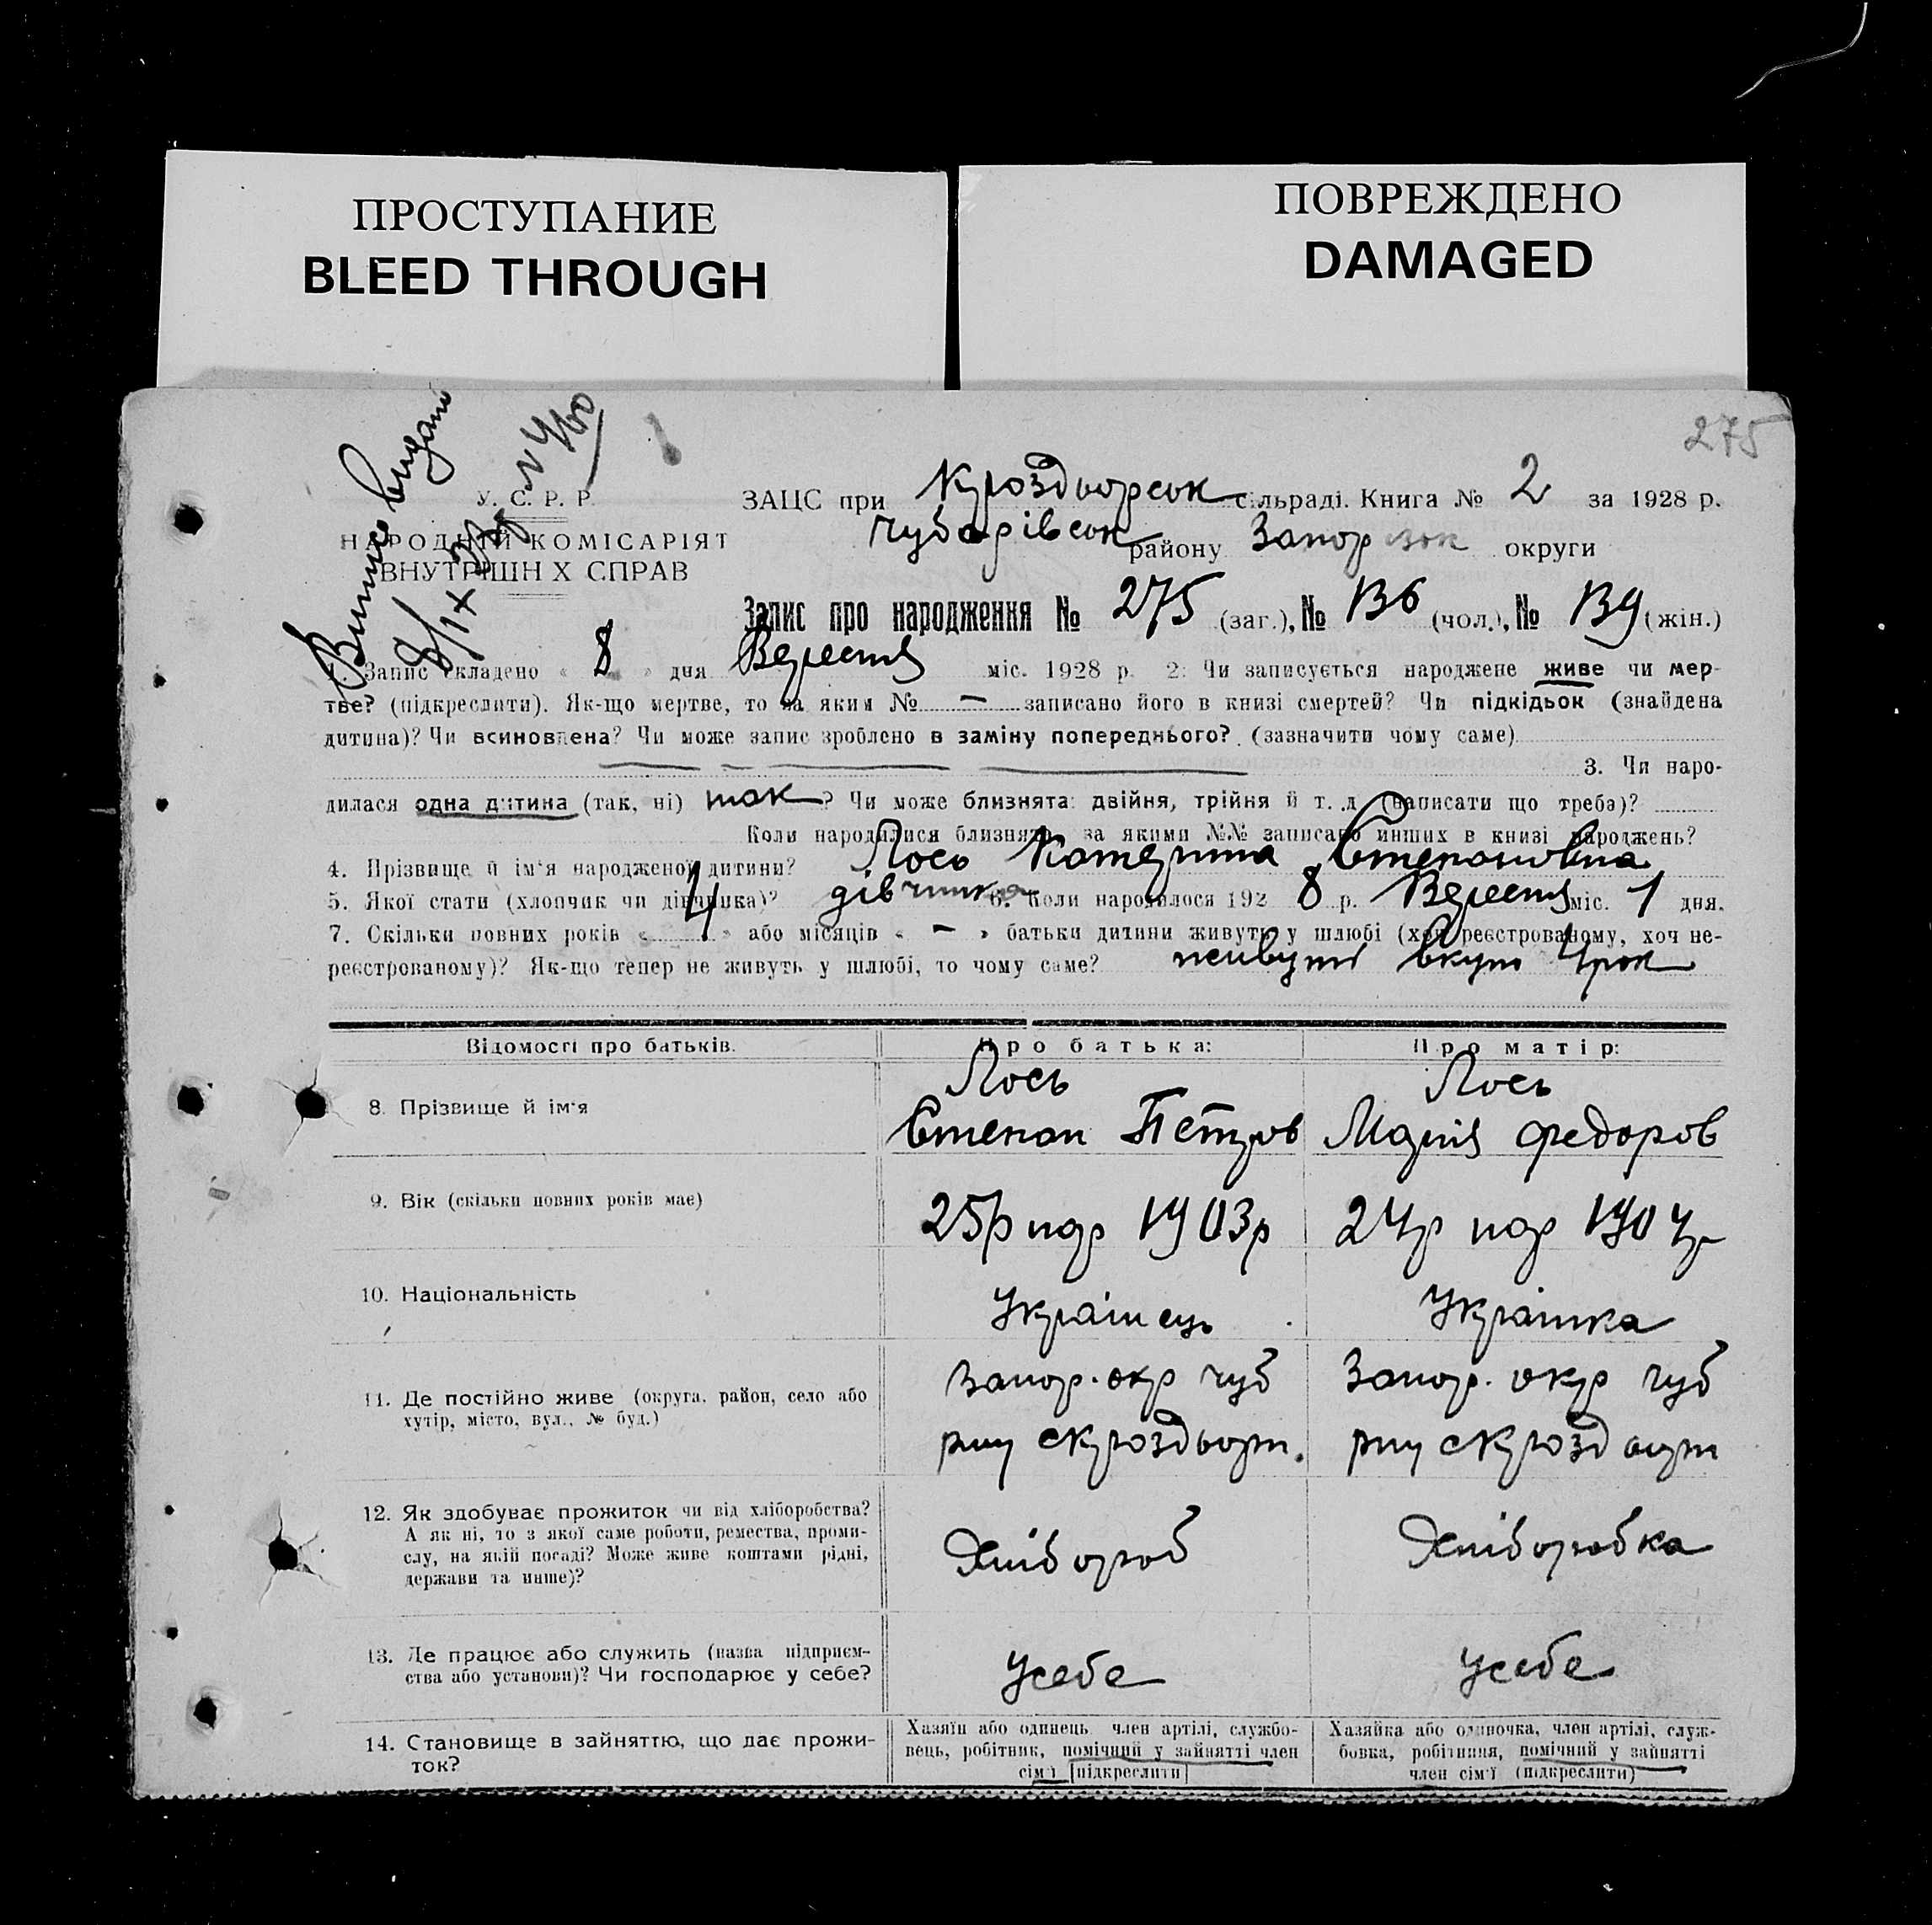 ПРОСТУПАНИЕ
BLEED THROUGH
ПОВРЕЖДЕНО
DAMAGED
275
Витис видано
8/IX
У. С. Р. Р.
НАРОДНІЙ КОМІСАРІЯТ
ВНУТРІШН Х СПРАВ
ЗАЦС при Кроздворсок сільраді. Книга № 2 за 1928 р.
Чубарівсок району Запорізок округи
Запис про народження № 275 (заг.), № 136 (чол.), № 139 (жін.)
1. Запис складено « 8 » дня Вересня міс. 1928 р. 2. Чи записується народжене живе чи мер-
тве? (підкреслити). Як-що мертве, то за яким № — записано його в книзі смертей? Чи підкідьок (знайдена
дитина)? Чи всиновлена? Чи може запис зроблено в заміну попереднього? (зазначити чому саме)
3. Чи наро-
дилася одна дитина (так, ні) так? Чи може близнята: двійня, трійня й т. д. (написати що треба)?
Коли народилися близнята, за якими №№ записано инших в книзі народжень?
4. Прізвище й ім'я народженої дитини? Лось Катерина Степановна
5. Якої стати (хлопчик чи дівчинка)? дівчинка 6. Коли народилося 192 8 р. Вересня міс. 1 дня.
7. Скільки повних років « 4 » або місяців « — » батьки дитини живуть у шлюбі (хоч реєстрованому, хоч не-
реєстрованому)? Як-що тепер не живуть у шлюбі, то чому саме? живуть вкупі 4 рок
Відомості про батьків. Про батька: Про матір:
8. Прізвище й ім'я
Лось
Степан Петров
Лось
Марія Федоров
9. Вік (скільки повних років має)
25р нар 1903р
24р нар 1904р
10. Національність
Українець
Українка
11. Де постійно живе (округа, район, село або
хутір, місто, вул., № буд.)
Запор. окр Чуб
рну с Кроздворт.
Запор. окр Чуб
рну с Крозд
12. Як здобуває прожиток чи від хліборобства?
А як ні, то з якої саме роботи, ремества, проми-
слу, на якій посаді? Може живе коштами рідні,
держави та инше)?
Хлібороб
Хліборобка
13. Де працює або служить (назва підприєм-
ства або установи)? Чи господарює у себе?
Усебе
Усебе
14. Становище в зайняттю, що дає прожи-
ток?
Хазяїн або одинець, член артілі, службо-
вець, робітник, помічний у зайнятті член
сім'ї [підкреслити]
Хазяйка або одиночка, член артілі, служ-
бовка, робітниця, помічний у зайнятті
член сім'ї (підкреслити)